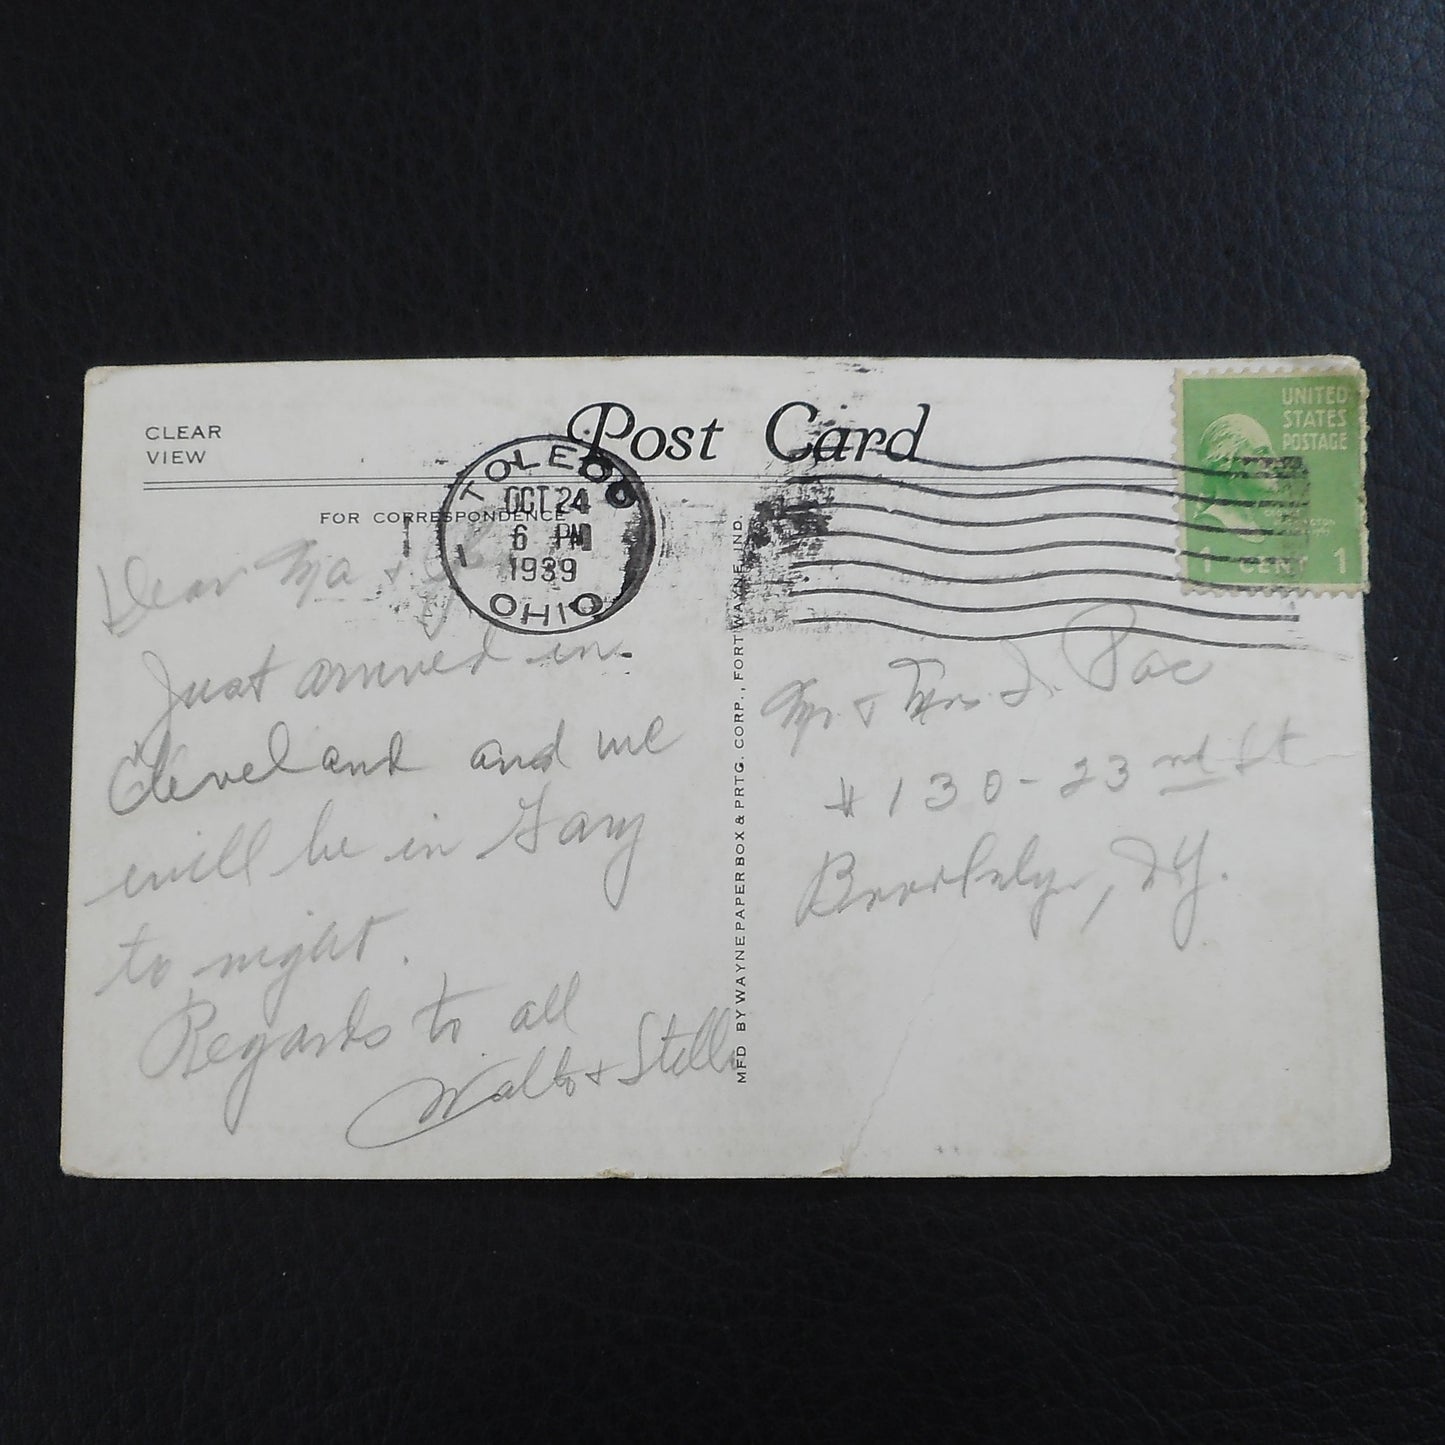 CLEAR
VIEW
Post Card
UNITED
STATES
POSTAGE
1 CENT 1
TOLEDO
OCT 24
6 PM
1939
OHIO
1
FOR CORRESPONDENCE
Dear Ma +
Just arrived in
Cleveland and we
will be in Gary
to night.
Regards to all
Walt + Stella
MFD BY WAYNE PAPER BOX & PRTG. CORP., FORT WAYNE, IND.
Mr. + Mrs I. Pac
# 130-23nd St
Brooklyn, NY.